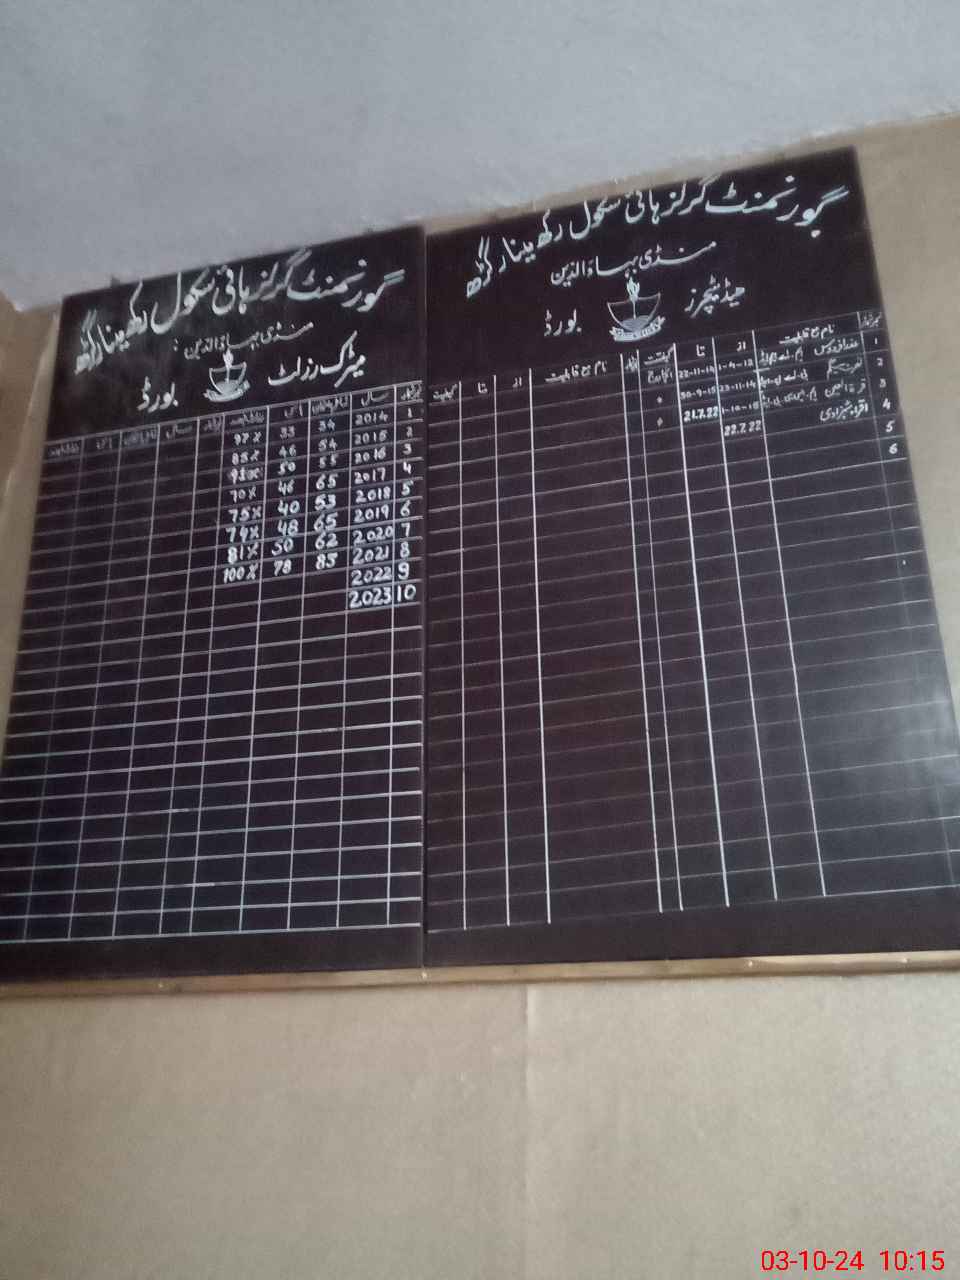 گورنمنٹ گرلز ہائی سکول رکھ مینار گڑھ
منڈی بہاؤالدین
ہیڈ ٹیچرز بورڈ
نمبر شمار نام مع قابلیت از تا کیفیت نمبر شمار نام مع قابلیت از تا کیفیت
1 1-4-12 22-11-14 انچارج
2 23-11-14 30-9-15 〃
3 قرۃ العین 1-10-15 21.7.22 〃
4 اقراء شہزادی 22.7.22
5
6
گورنمنٹ گرلز ہائی سکول رکھ مینار گڑھ
منڈی بہاؤالدین
میٹرک رزلٹ بورڈ
نمبر شمار سال پاس سال پاس
1 2014 34 33 97%
2 2015 54 46 85%
3 2016 55 50
4 2017 65 46 70%
5 2018 53 40 75%
6 2019 65 48 74%
7 2020 62 50 81%
8 2021 83 78 100%
9 2022
10 2023
03-10-24 10:15